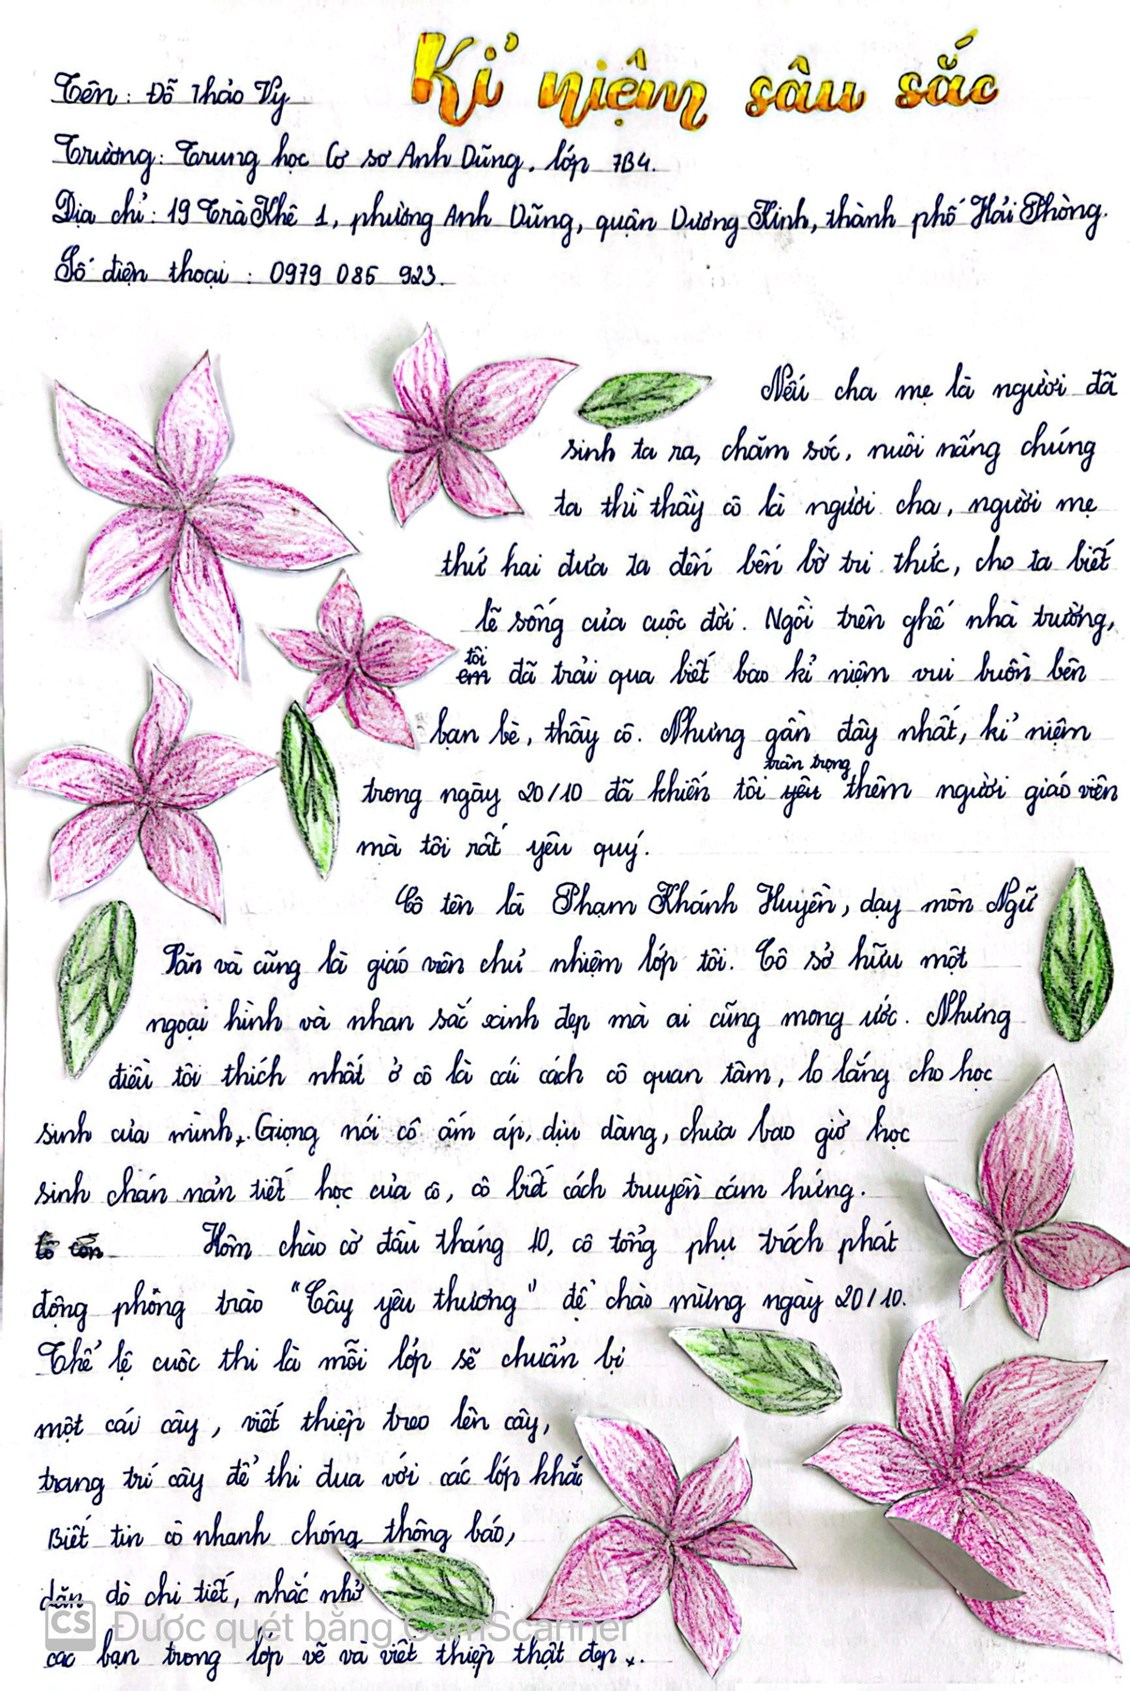 Kỉ niệm sâu sắc
Tên: Đỗ Thảo Vy
Trường: Trung học Cơ sơ Anh Dũng. lớp 7B4.
Địa chỉ: 19 Trà Khê 1, phường Anh Dũng, quận Dương Kinh, thành phố Hải Phòng.
Số điện thoại: 0979 085 923.
Nếu cha mẹ là người đã
sinh ta ra, chăm sóc, nuôi nấng chúng
ta thì thầy cô là người cha, người mẹ
thứ hai đưa ta đến bến bờ tri thức, cho ta biết
lẽ sống của cuộc đời. Ngồi trên ghế nhà trường,
tôi
em đã trải qua biết bao kỉ niệm vui buồn bên
bạn bè, thầy cô. Nhưng gần đây nhất, kỉ niệm
trân trọng
trong ngày 20/10 đã khiến tôi yêu thêm người giáo viên
mà tôi rất yêu quý.
Cô tên là Phạm Khánh Huyền, dạy môn Ngữ
Văn và cũng là giáo viên chủ nhiệm lớp tôi. Cô sở hữu một
ngoại hình và nhan sắc xinh đẹp mà ai cũng mong ước. Nhưng
điều tôi thích nhất ở cô là cái cách cô quan tâm, lo lắng cho học
sinh của mình. Giọng nói cô ấm áp, dịu dàng, chưa bao giờ học
sinh chán nản tiết học của cô, cô biết cách truyền cảm hứng.
Hôm chào cờ đầu tháng 10, cô tổng phụ trách phát
động phong trào "Cây yêu thương" để chào mừng ngày 20/10.
Thể lệ cuộc thi là mỗi lớp sẽ chuẩn bị
một cái cây, viết thiệp treo lên cây,
trang trí cây để thi đua với các lớp khác
Biết tin cô nhanh chóng thông báo,
dặn dò chi tiết, nhắc nhở
các bạn trong lớp vẽ và viết thiệp thật đẹp.
CS Được quét bằng CamScanner